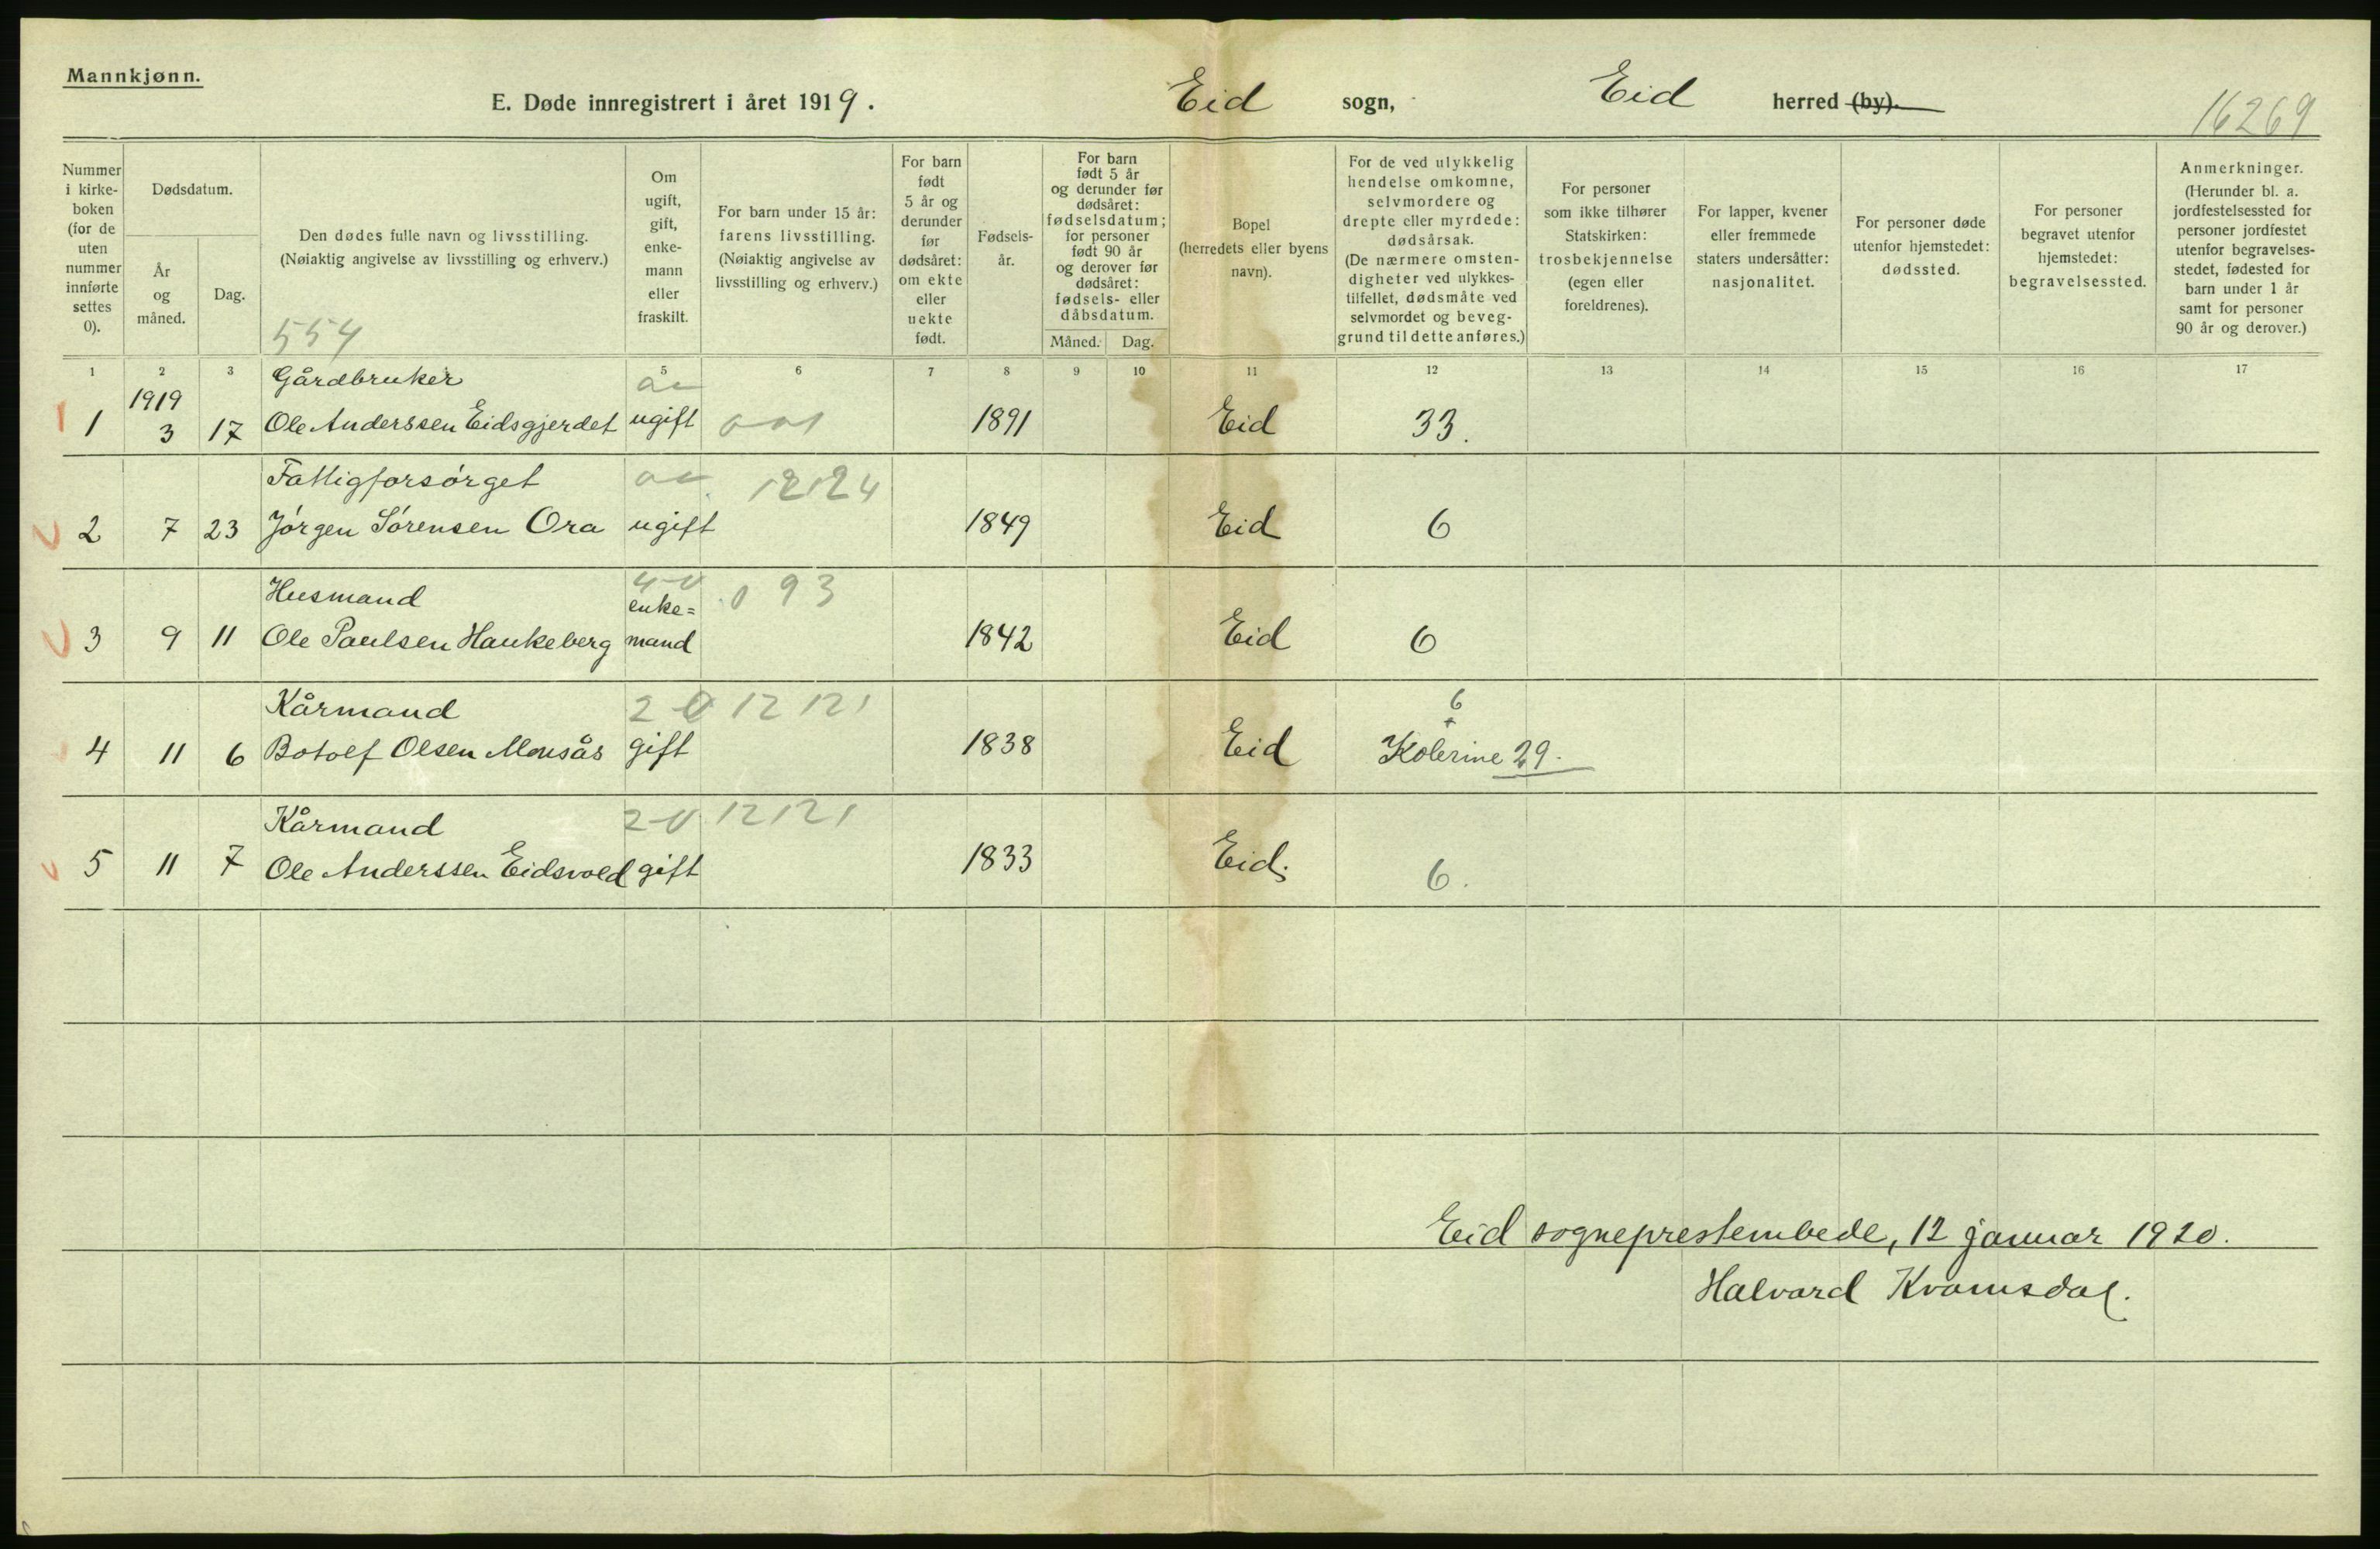 Mannkjønn.
E. Døde innregistrert i året 1919. Eid sogn, Eid herred (by).
16269
Nummer i kirkeboken (for de uten nummer innførte settes 0).
Dødsdatum.
År og måned.
Dag.
Den dødes fulle navn og livsstilling.
(Nøiaktig angivelse av livsstilling og erhverv.)
554
Om ugift, gift, enkemann eller fraskilt.
For barn under 15 år: farens livsstilling.
(Nøiaktig angivelse av livsstilling og erhverv.)
For barn født 5 år og derunder før dødsåret: om ekte eller uekte født.
Fødselsår.
For barn født 5 år og derunder før dødsåret: fødselsdatum; for personer født 90 år og derover før dødsåret: fødsels- eller dåbsdatum.
Måned. Dag.
Bopel (herredets eller byens navn).
For de ved ulykkelig hendelse omkomne, selvmordere og drepte eller myrdede: dødsårsak.
(De nærmere omstendigheter ved ulykkestilfellet, dødsmåte ved selvmordet og beveggrund til dette anføres.)
For personer som ikke tilhører Statskirken: trosbekjennelse (egen eller foreldrenes).
For lapper, kvener eller fremmede staters undersåtter: nasjonalitet.
For personer døde utenfor hjemstedet: dødssted.
For personer begravet utenfor hjemstedet: begravelsessted.
Anmerkninger.
(Herunder bl. a. jordfestelsessted for personer jordfestet utenfor begravelsesstedet, fødested for barn under 1 år samt for personer 90 år og derover.)
1 2 3 5 6 7 8 9 10 11 12 13 14 15 16 17
1919 Gårdbruker
1 3 17 Ole Anderssen Eidsgjerdet ugift 1891 Eid 33.
Fattigforsørget 12124
2 7 23 Jørgen Sørensen Ora ugift 1849 Eid 6
Husmand enke= 093
3 9 11 Ole Paulsen Haukeberg mand 1842 Eid 6
Kårmand 20 12121 6
4 11 6 Botolf Olsen Monsås gift 1838 Eid Kolerine 29.
Kårmand 20 12121
5 11 7 Ole Anderssen Eidsvold gift 1833 Eid. 6.
Eid sogneprestembede, 12 januar 1920.
Halvard Kvamsdal.